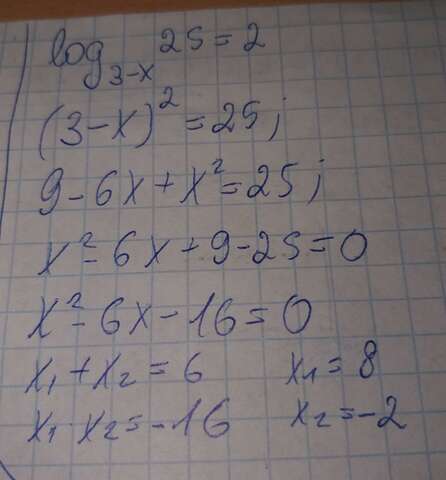 log₃₋ₓ 25 = 2
(3-x)² = 25;
9-6x+x²=25;
x²-6x+9-25=0
x²-6x-16=0
x₁+x₂=6 x₁=8
x₁·x₂=-16 x₂=-2